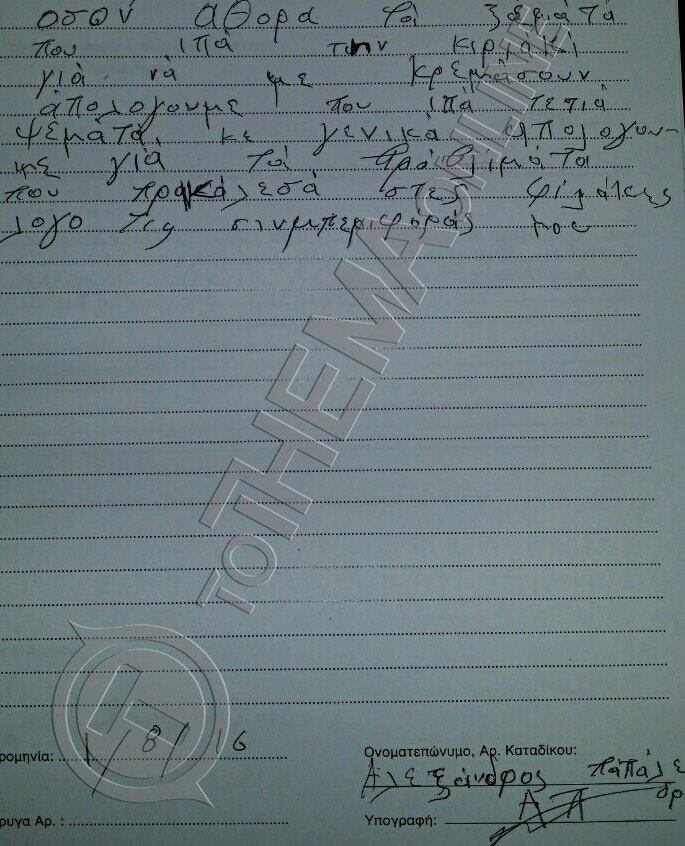 οσον αθορα τα ζεμιατα
που ιπα την κιριακι
για να με κρεμασουν
απολογουμε που ιπα τετια
ψεματα, κε γενικα απολογουν-
με για τα προβλιματα
που πρακαλεσα στες φιλακες
λογο τις σινμπεριφορας μου
TOTHEMAONLINE
ρομηνία: 1/8/16
Ονοματεπώνυμο, Αρ. Καταδίκου:
Αλεξανδρος παπαλε
ρυγα Αρ. :
Υπογραφή: